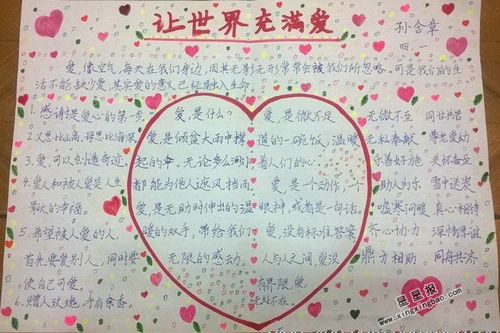 让世界充满爱
孙含章
四一
爱,像空气,每天在我们身边,因其无影无形常常会被我们所忽略,可是我们的生
活不能缺少爱,其实爱的意义已经融入生命
1.感谢是爱心的第一步
2.父恩比山高,母恩比海深
3.爱可以创造奇迹
4.爱人和被人爱是人生
最大的幸福。
5.希望被人爱的人,
首先要爱别人,同时要
使自己可爱。
6.赠人玫瑰,手有余香。
爱,是什么? 爱,是微不足
爱,是倾盆大雨中撑 道的一碗饭,温暖
起的伞,无论多么渺小 着人们的心。
都能为他人遮风挡雨 爱,是一个动作,一个
爱,是无助时伸出的温 眼神,或者是一句话。
暖的双手,带给我们 爱,没有标准答案
无限的感动。 人与人之间,爱没
有界限,爱
无处不在
无微不至 同甘共苦
无私奉献
乐善好施
助人为乐 雪中送炭
嘘寒问暖 真心相待
齐心协力 深情厚谊
鼎力相助 同舟共济
星星报
www.xingxingbao.com